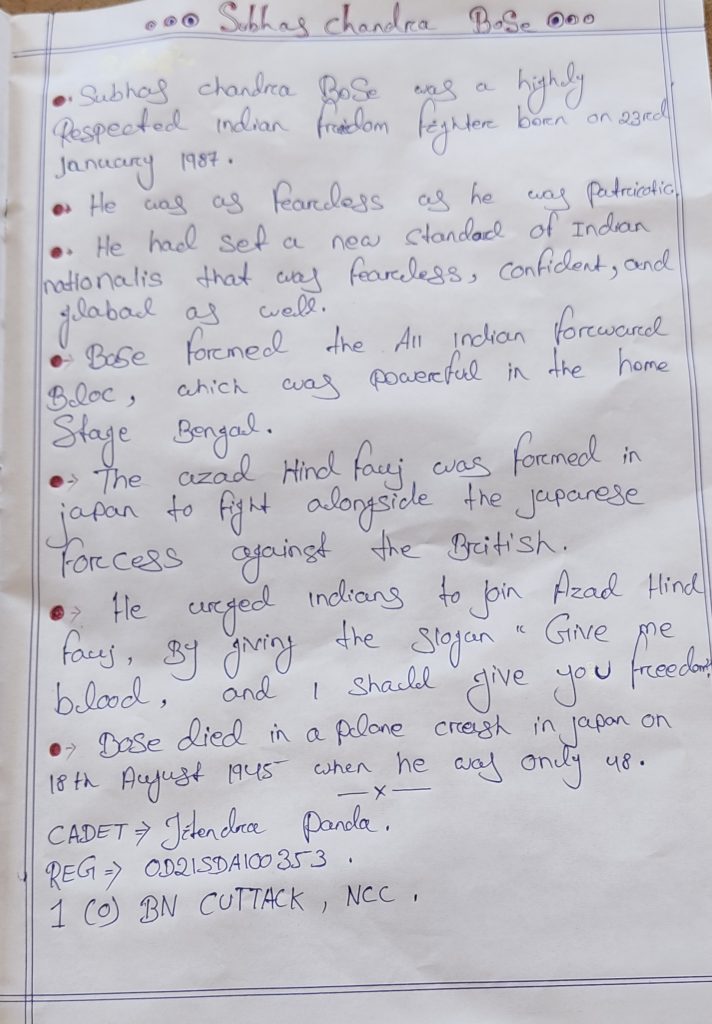 Subhas chandra BoSe
Subhas chandra BoSe was a highly
Respected indian freedom fighter born on 23rd
January 1987.
He was as fearless as he was patriotic.
He had set a new standard of Indian
nationalis that was fearless, confident, and
glabal as well.
BoSe formed the All indian forward
Bloc, which was powerful in the home
Stage Bengal.
The azad Hind fauj was formed in
japan to fight alongside the japanese
forcess against the British.
He urged indians to join Azad Hind
fauj, By giving the slogan "Give me
blood, and I shall give you freedom"
BoSe died in a plane crash in japan on
18th August 1945 when he was only 48.
—x—
CADET ⇒ Jitendra Panda.
REG ⇒ OD21SDA100353.
1 (O) BN CUTTACK, NCC.